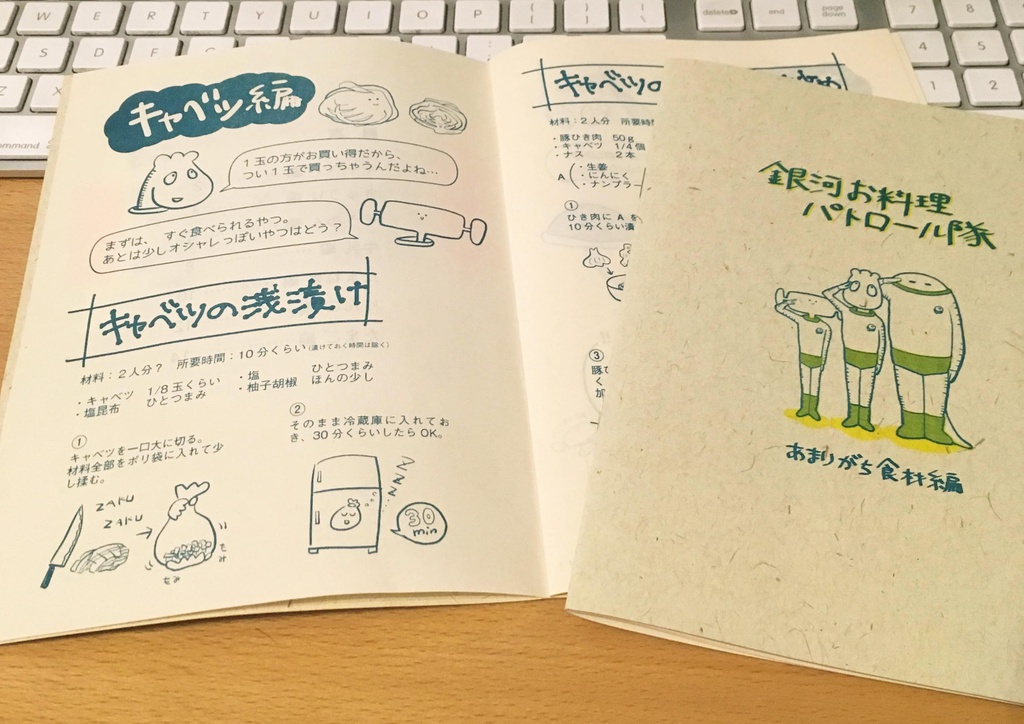 W E R T Y U I O P
delete
end
page down
7 8
S D F
4 5
Z X
1 2
command
キャベツ編
1玉の方がお買い得だから、
つい1玉で買っちゃうんだよね…
まずは、すぐ食べられるやつ。
あとは少しオシャレっぽいやつはどう？
キャベツの浅漬け
材料：2人分？ 所要時間：10分くらい(漬けておく時間は除く)
・キャベツ 1/8玉くらい ・塩 ひとつまみ
・塩昆布 ひとつまみ ・柚子胡椒 ほんの少し
①
キャベツを一口大に切る。
材料全部をポリ袋に入れて少
し揉む。
ZAKU
ZAKU
もみ
もみ
②
そのまま冷蔵庫に入れてお
き、30分くらいしたらOK。
ZZZZ
30
min
キャベツの
材料：2人分 所要時
・豚ひき肉 50g
・キャベツ 1/4個
・ナス 2本
A
・生姜
・にんにく
・ナンプラー
①
ひき肉にAを
10分くらい漬
③
豚ひ
くか
銀河お料理
パトロール隊
あまりがち食材編